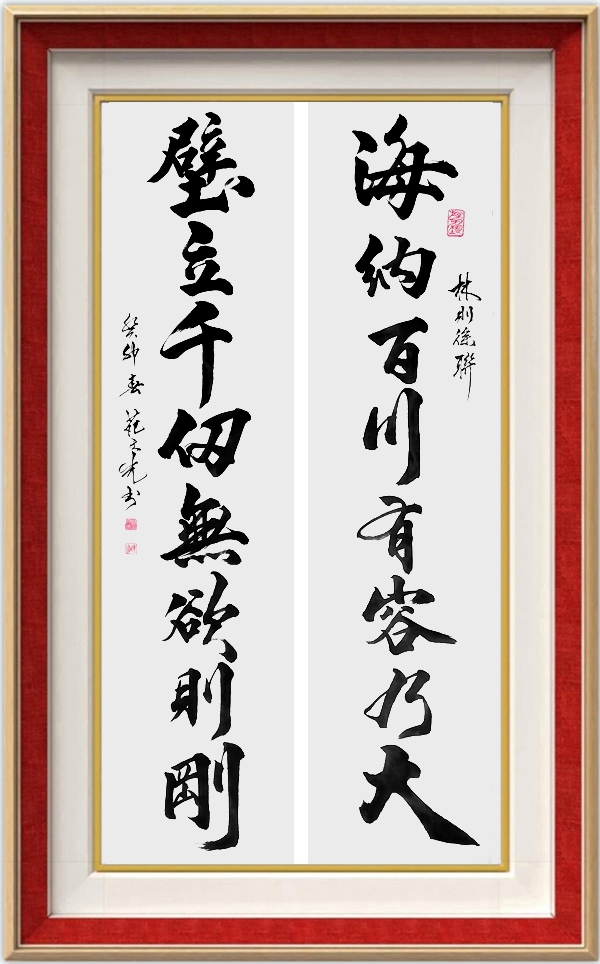 海納百川有容乃大
林則徐聯
壁立千仞無欲則剛
癸卯春范文光書